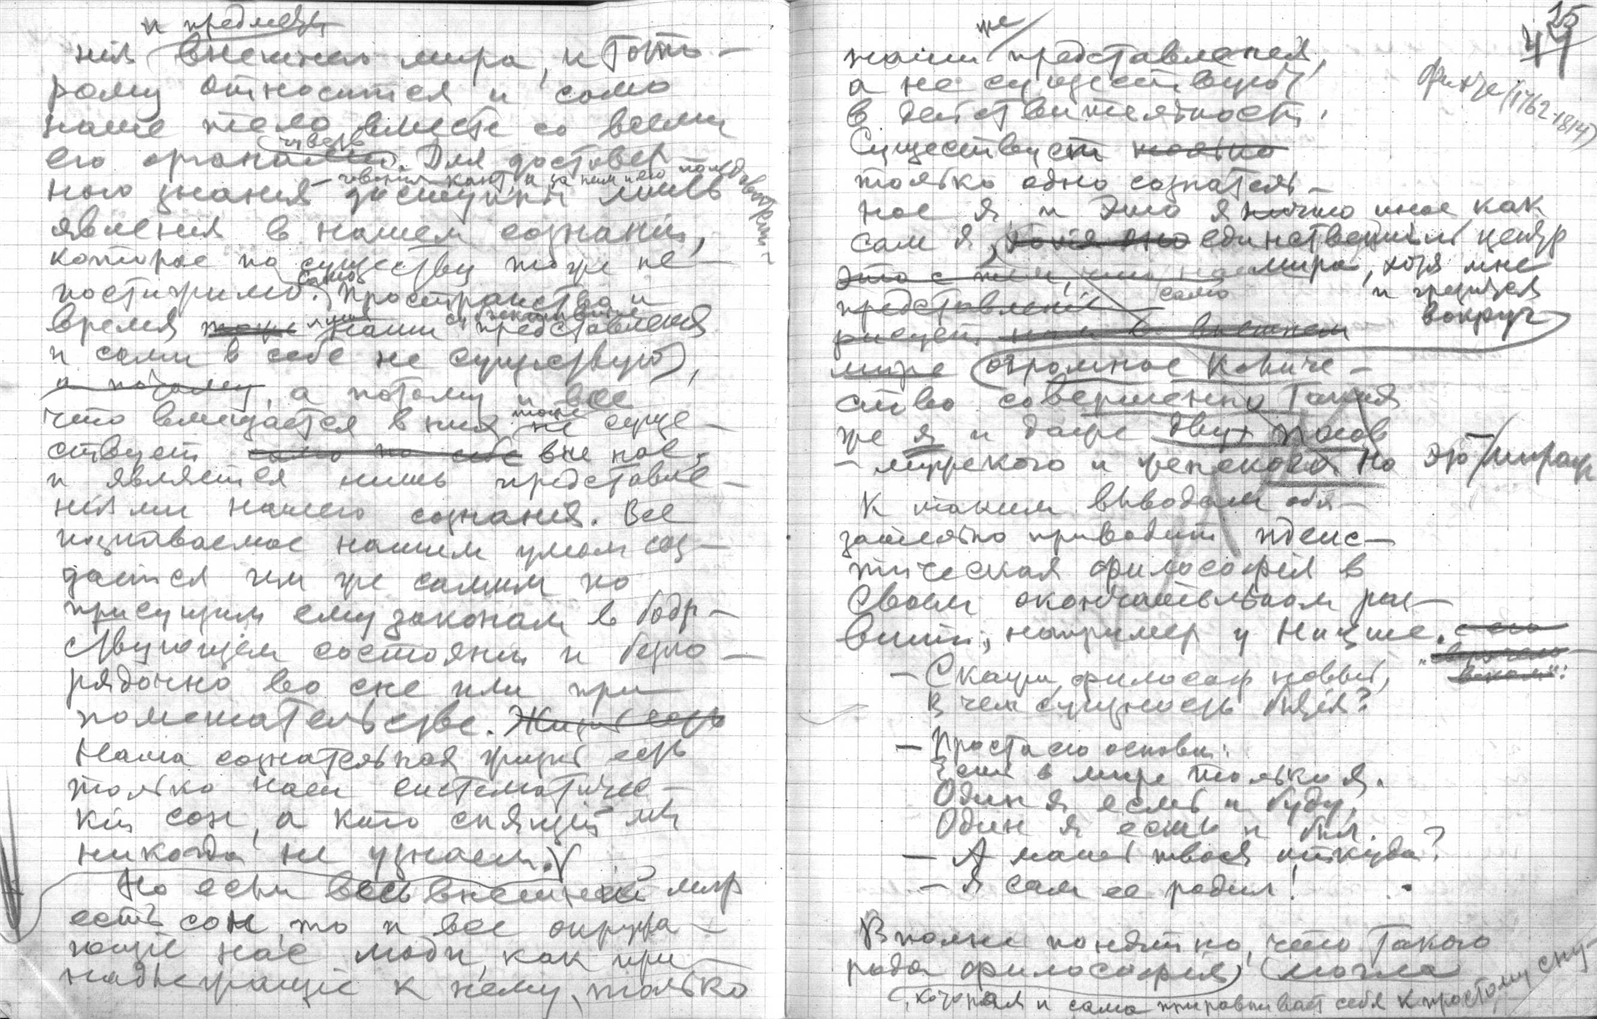 и предметы
нія внешняго мира, к кото-
рому относится и само
наше тело вместе со всеми
его органами чувств. Для достовер-
ного знания доступны лишь
говорил Кант, а за ним и его последователи
явления в нашем сознании,
которое по существу тоже не-
постижимо само. Пространство и
время лишь наши субъективные представления
и сами в себе не существуют,
а потому, а потому и все
что вмещается в них тоже не суще-
ствует само по себе вне нас,
и является лишь представле-
ніями нашего сознания. Все
познаваемое нашим умом соз-
дается им же самим по
присущим ему законам в бодр-
ствующем состоянии и беспо-
рядочно во сне или при
помешательстве. Жизнь есть
Наша сознательная жизнь есть
только наш систематичес-
кій сон, а кто спящій мы
никогда не узнаем.
Но если весь внешній мир
есть сон, то и все окружа-
ющіе нас люди, как при-
надлежащіе к нему, только
25
же
наши представления,
а не существуют
в действительности.
Фихте (1762-1814)
Существует только
только одно сознатель-
ное я, и это я ничто иное как
сам я, единственный центр
это с тем, что мира, хотя мне
представлений само и грезится
рисует вокруг
мире огромное количе-
ство совершенно таких
же я и даже двух полов
- мужского и женского. Но это мираж
К таким выводам обя-
зательно приводит идеис-
тическая философія в
своем окончательном раз-
витіи, например у Ницше. с его
- Скажи философ новый,
В чем сущность бытія?
- Проста его основа:
Есть в мире только я.
Один я есмь и буду,
Один я есмь и был.
- А мать твоя откуда?
- Я сам ее родил!
Вполне понятно, что такого
рода философія могла
(которая и сама приравнивает себя к простому сну